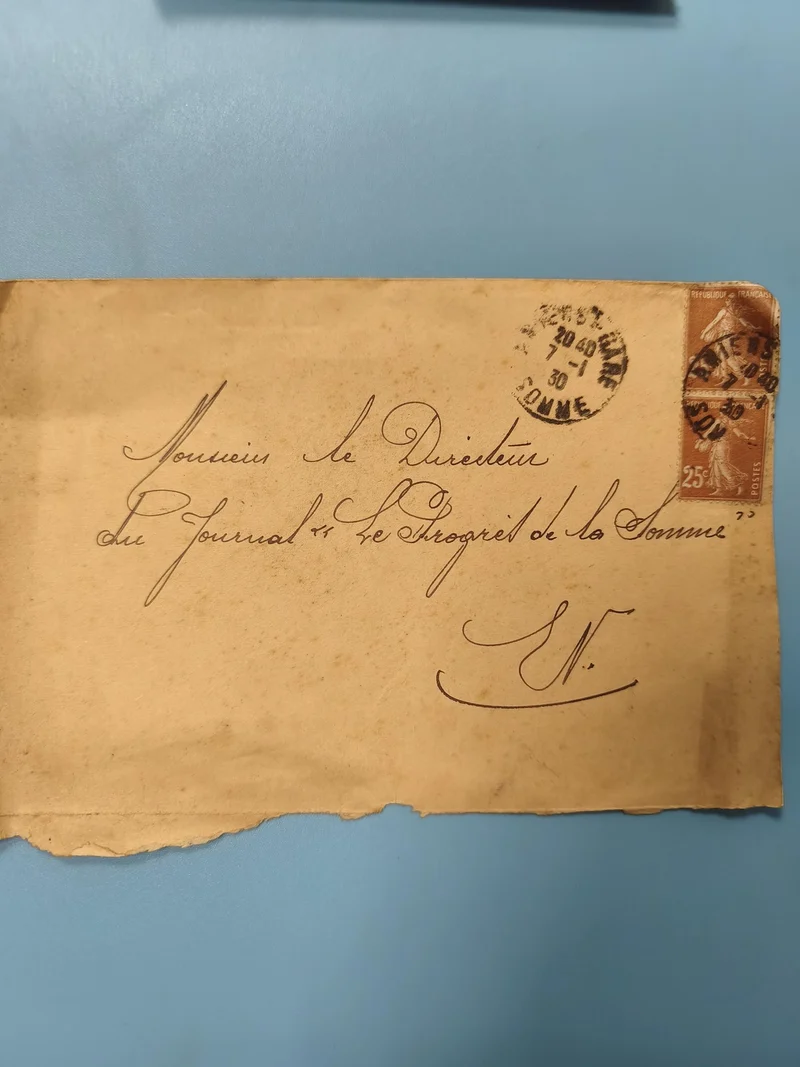 AMIENS-GARE
20 40
7 -1
30
SOMME
REPUBLIQUE FRANCAISE
POSTES
AMIENS
20 40
7 -1
30
25c
POSTES
Monsieur le Directeur
du Journal "Le Progrès de la Somme"
E.V.